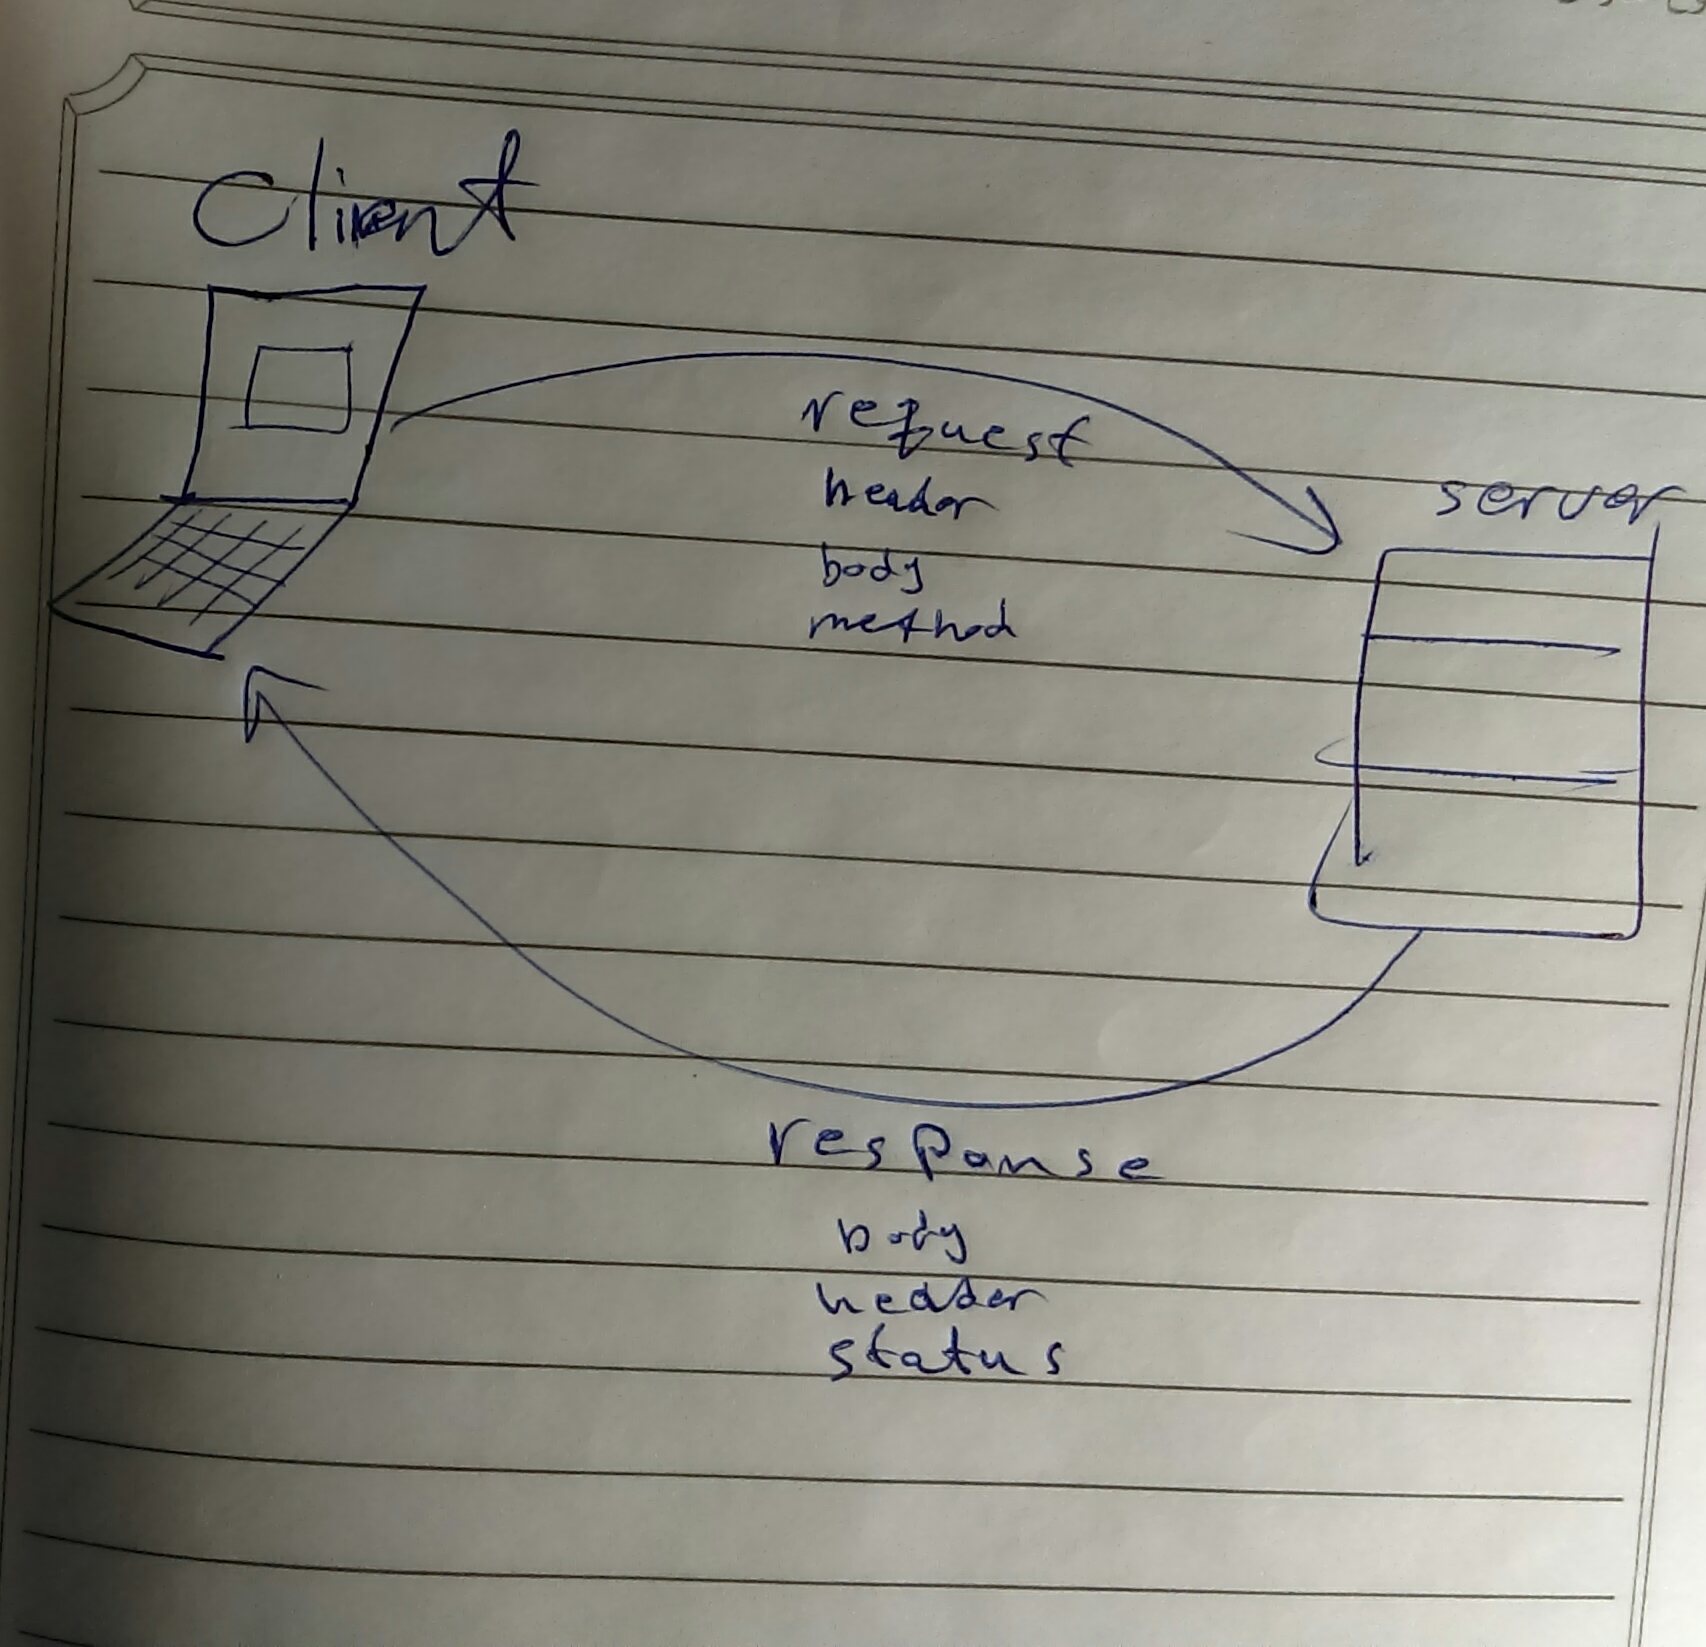 Client
request
header
body
method
server
response
body
header
status